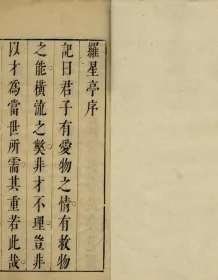 羅星亭序
記曰君子有愛物之情有救物
之能橫流之弊非才不理豈非
以才為當世所需其重若此哉